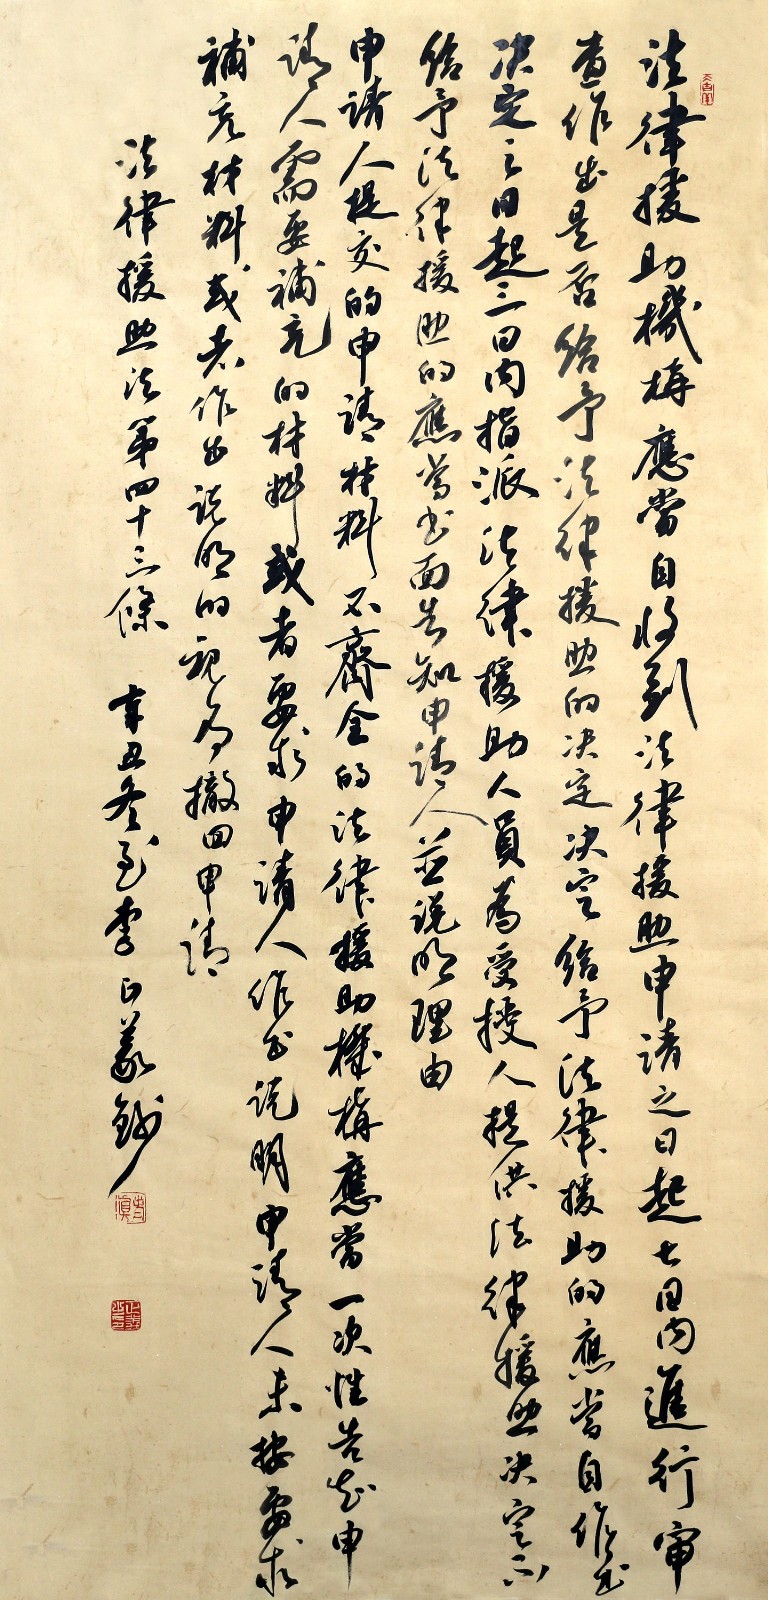 法律援助機構應當自收到法律援助申請之日起七日内進行审
查作出是否給予法律援助的决定决定給予法律援助的應當自作出
决定之日起三日内指派法律援助人員為受援人提供法律援助决定不
給予法律援助的應當书面告知申請人並説明理由
申請人提交的申請材料不齊全的法律援助機構應當一次性告知申
請人需要補充的材料或者要求申請人作出説明申請人未按要求
補充材料或者作出説明的視為撤回申請
法律援助法第四十三條 辛丑冬至李正義鈔